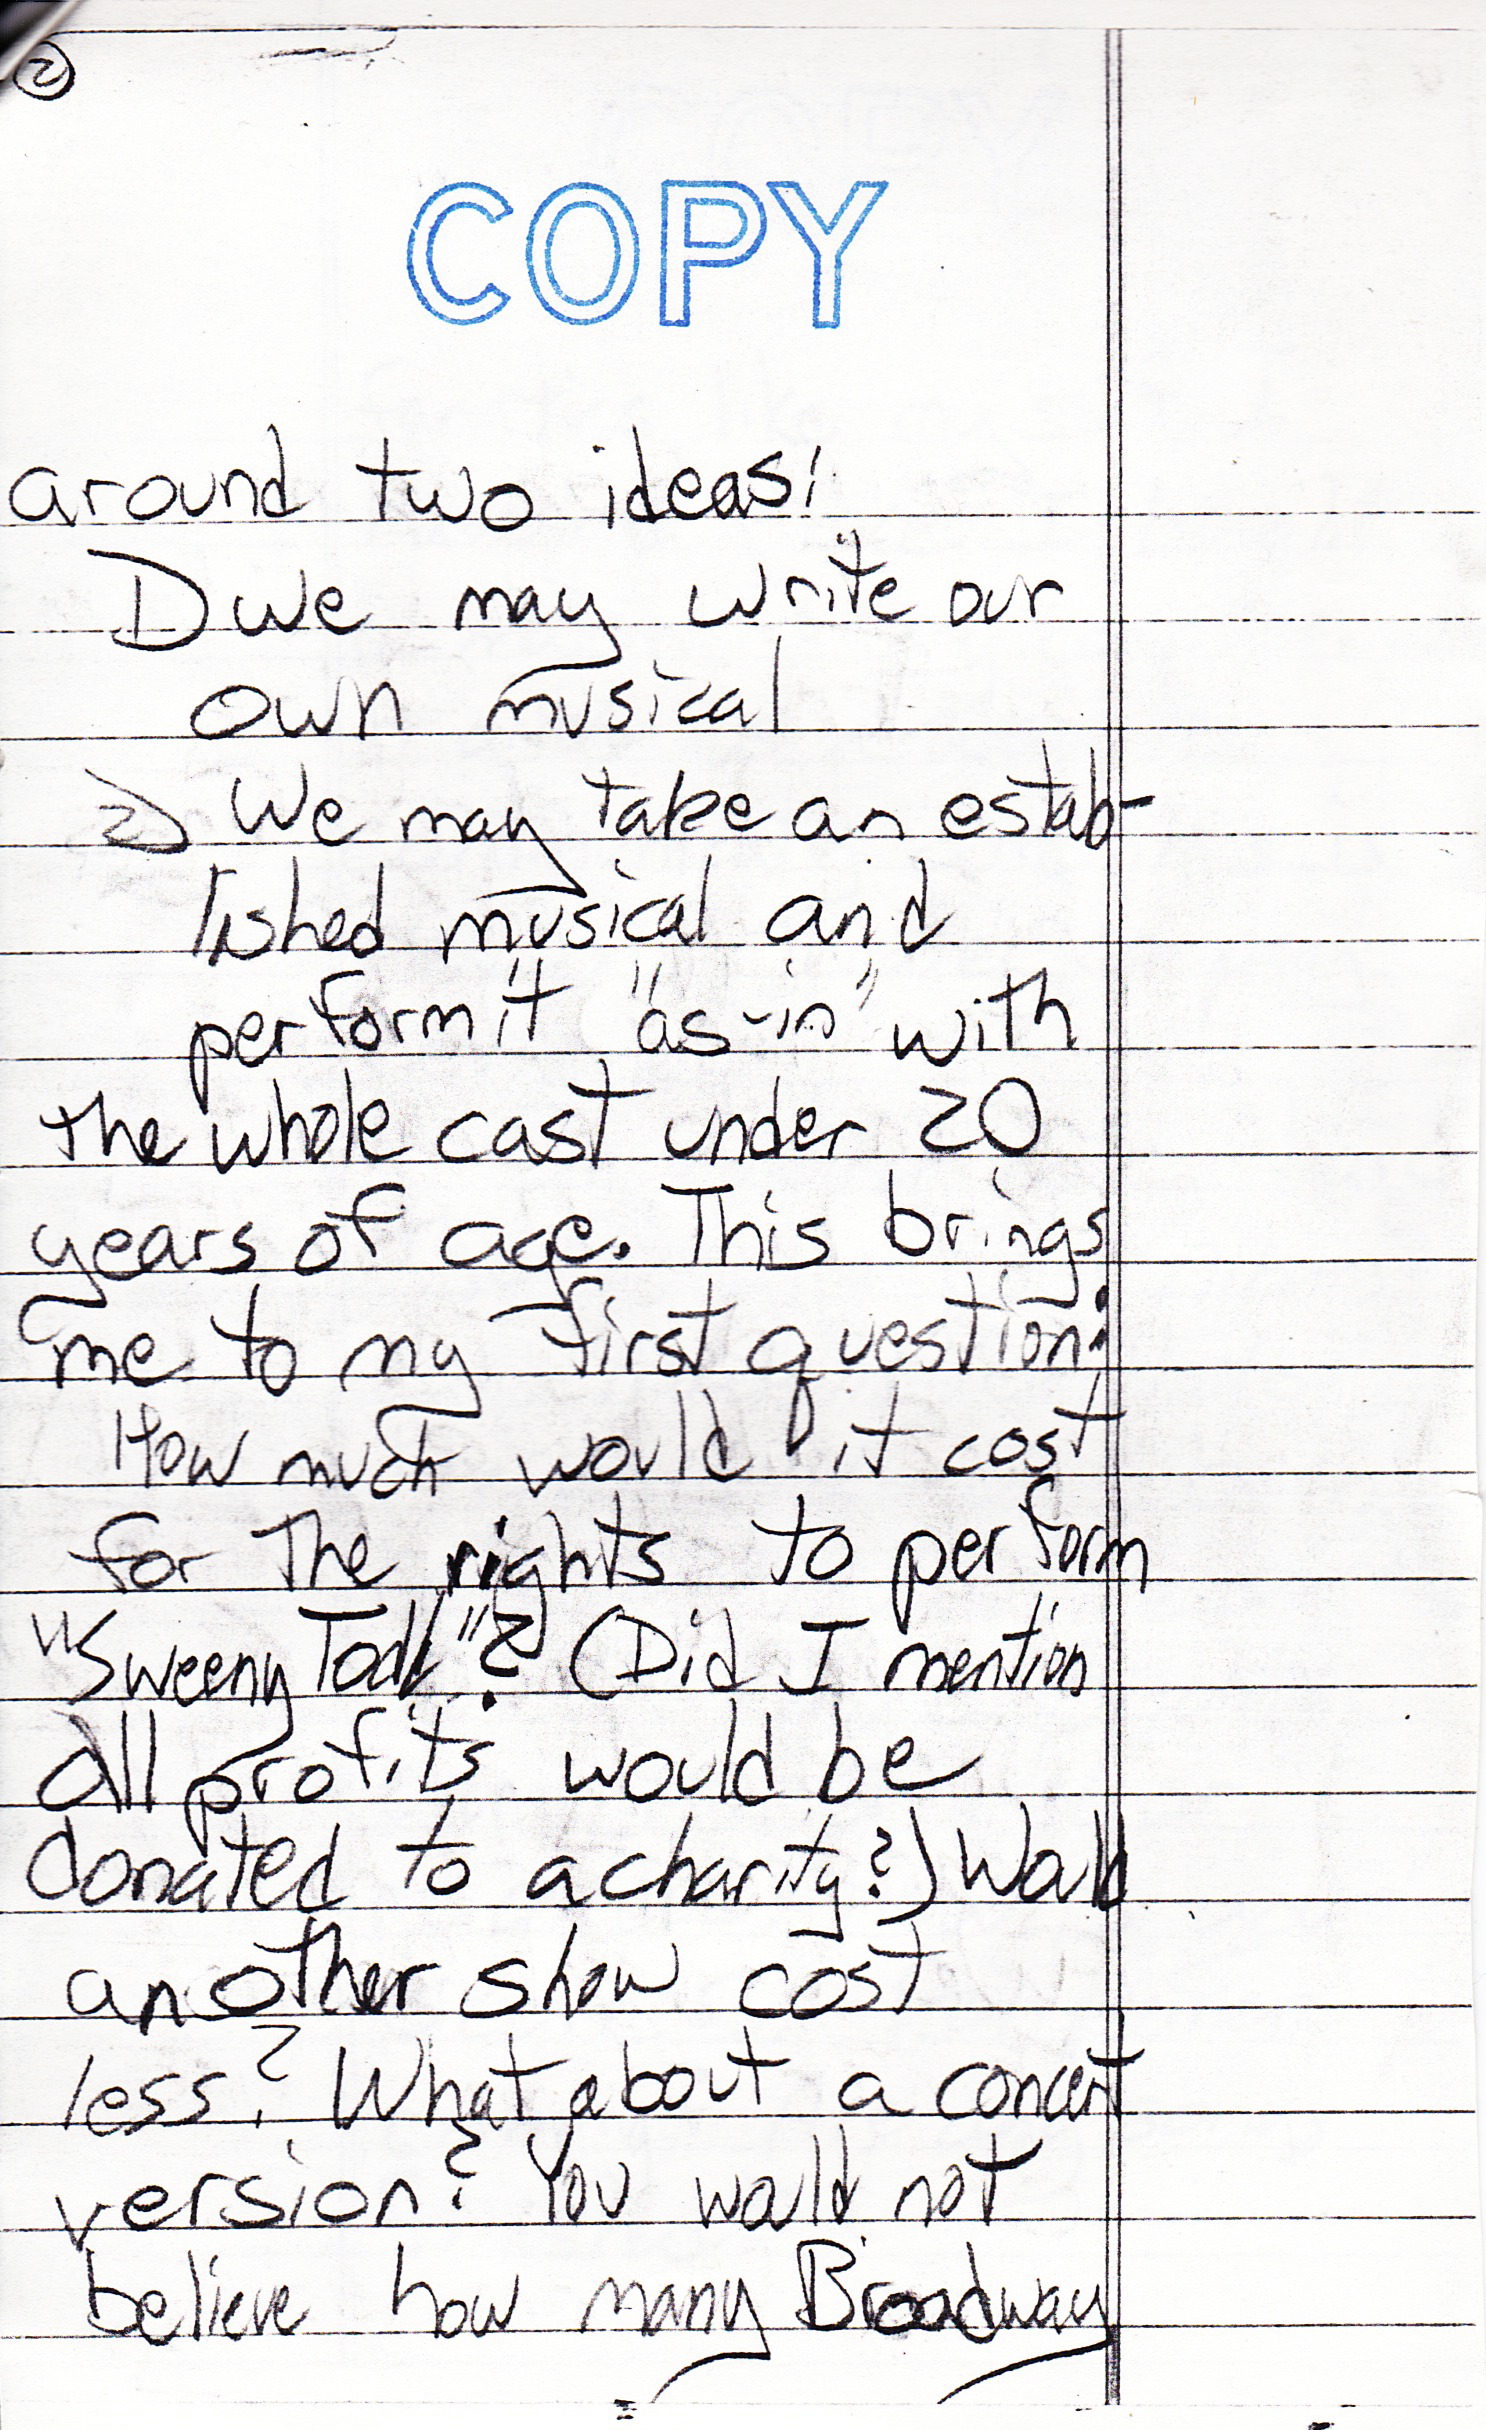 ②
COPY
around two ideas:
1) we may write our
own musical
2) We may take an estab-
lished musical and
perform it "as-is" with
the whole cast under 20
years of age. This brings
me to my first question:
How much would it cost
for the rights to perform
"Sweeny Todd"? (Did I mention
all profits would be
donated to a charity?) Would
another show cost
less? What about a concert
version? You would not
believe how many Broadway